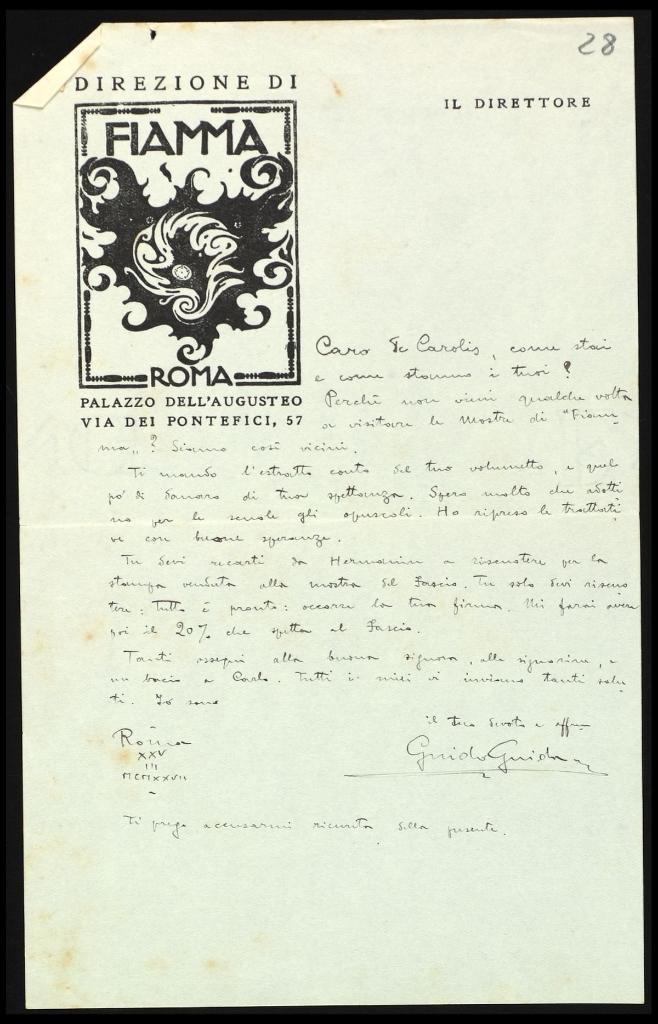 28
DIREZIONE DI
IL DIRETTORE
FIAMMA
ROMA
PALAZZO DELL'AUGUSTEO
VIA DEI PONTEFICI, 57
Caro De Carolis, come stai
e come stanno i tuoi?
Perchè non vieni qualche volta
a visitare le Mostre di "Fiam-
ma„? Siamo così vicini.
Ti mando l'estratto conto del tuo volumetto, e quel
po' di danaro di tua spettanza. Spero molto che adotti
no per le scuole gli opuscoli. Ho ripreso le trattati
ve con buone speranze.
Tu devi recarti da Hermanin a riscuotere per la
stampa venduta alla mostra del Fascio. Tu solo devi riscuo
tere: Tutto è pronto: occorre la tua firma. Mi farai avere
poi il 20% che spetta al Fascio.
Tanti ossequi alla buona signora, alla signorina, e
un bacio a Carlo. Tutti i miei vi inviano tanti salu
ti. Io sono
il tuo devoto e affmo
Guido Guida
Roma
XXV
III
MCMXXVII
Ti prego accusarmi ricevuta della presente.